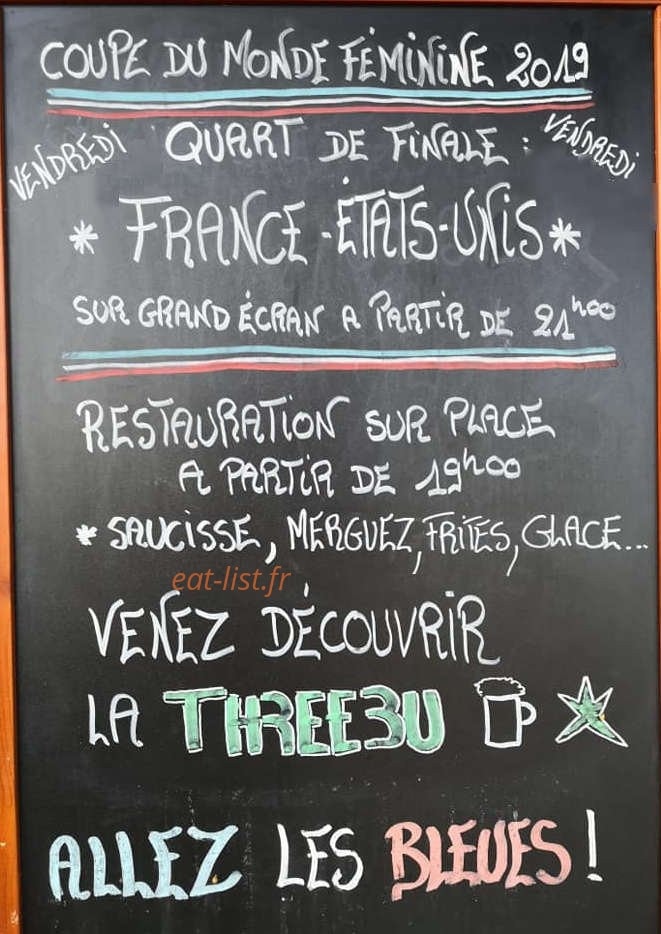 COUPE DU MONDE FÉMININE 2019
VENDREDI QUART DE FINALE : VENDREDI
* FRANCE - ÉTATS-UNIS *
SUR GRAND ÉCRAN A PARTIR DE 21h00
RESTAURATION SUR PLACE
A PARTIR DE 19h00
* SAUCISSE, MERGUEZ, FRITES, GLACE...
eat-list.fr
VENEZ DÉCOUVRIR
LA THREE3U
ALLEZ LES BLEUES !